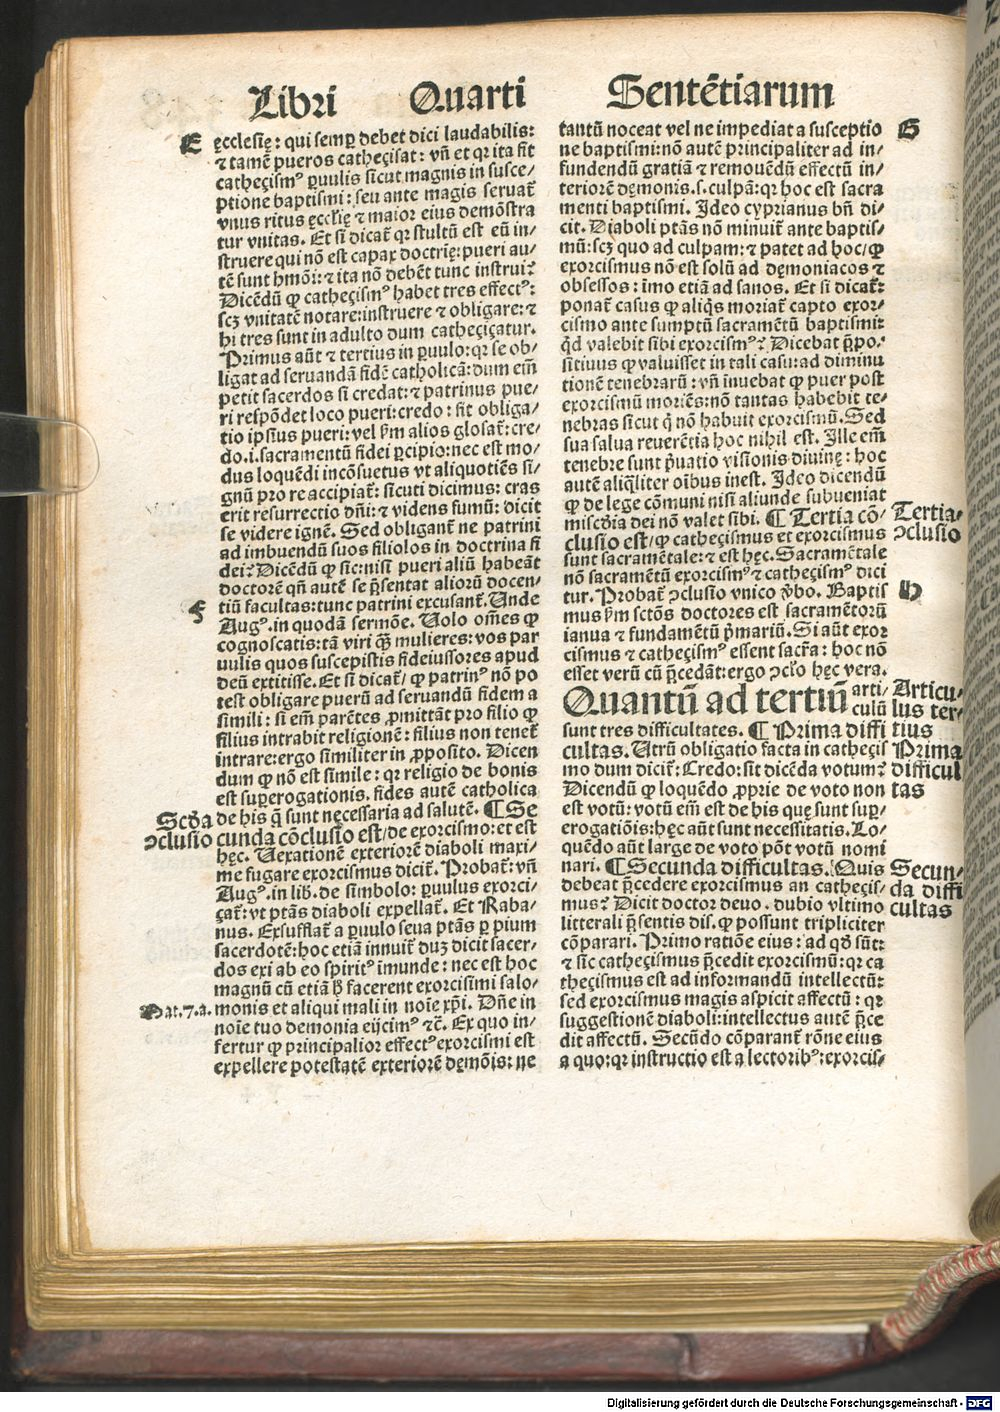 Libri Quarti Sentẽtiarum
E
ęcclesię: qui semꝑ debet dici laudabilis:
⁊ tamẽ pueros cathecisat: vñ et qr ita fit
cathecismꝰ ꝑuulis sicut magnis in susce⸗
ptione baptismi: seu ante magis seruat᷑
vnus ritus ęcclię ⁊ maior eius demõstra
tur vnitas. Et si dicat᷑ qr stultũ est eũ in⸗
struere qui nõ est capax doctrię: pueri au⸗
tẽ sunt hmõi: ⁊ ita nõ debẽt tunc instrui?
Dicẽdũ ꝙ cathecismꝰ habet tres effectꝰ:
scꝫ vnitatẽ notare: instruere ⁊ obligare: ⁊
hi tres sunt in adulto dum cathecicatur.
Primus aũt ⁊ tertius in ꝑuulo: qr se ob⸗
ligat ad seruandã fidẽ catholicã: dum em̃
petit sacerdos si credat: ⁊ patrinus pue⸗
ri respõdet loco pueri: credo: fit obliga⸗
tio ipsius pueri: vel ẜm alios glosat᷑: cre⸗
do .i. sacramentũ fidei ꝑcipio: nec est mo⸗
dus loquẽdi incõsuetus vt aliquotiẽs si⸗
gnũ pro re accipiat᷑: sicuti dicimus: cras
erit resurrectio dñi: ⁊ videns fumũ: dicit
se videre ignẽ. Sed obligant᷑ ne patrini
ad imbuendũ suos filiolos in doctrina fi
dei? Dicẽdũ ꝙ sic: nisi pueri aliũ habeãt
doctorẽ qñ autẽ se p̃sentat aliorũ docen⸗
F
tiũ facultas: tunc patrini excusant᷑. Unde
Augꝰ. in quodã sermõe. Uolo om̃es ꝙ
cognoscatis: tã viri q̃ꝫ mulieres: vos par
uulis quos suscepistis fideiussores apud
deũ extitisse. Et si dicat᷑ ꝙ patrinꝰ nõ po
test obligare puerũ ad seruandũ fidem a
simili: si em̃ parẽtes ꝓmittãt pro filio ꝙ
filius intrabit religionẽ: filius non tenet᷑
intrare: ergo similiter in ꝓposito. Dicen
dum ꝙ nõ est simile: qr religio de bonis
est suꝑerogationis. fides autẽ catholica
Scd̃a
ꝯclusio
de his q̃ sunt necessaria ad salutẽ. ¶ Se
cunda cõclusio est / de exorcismo: et est
hęc. Uexationẽ exteriorẽ diaboli maxi⸗
me fugare exorcismus dicit᷑. Probat᷑: vñ
Augꝰ. in lib. de simbolo: ꝑuulus exorci⸗
cat᷑: vt ptãs diaboli expellat᷑. Et Raba⸗
nus. Exsufflat᷑ a ꝑuulo seua ptãs ꝑ pium
sacerdotẽ: hoc etiã innuit᷑ duꝫ dicit sacer⸗
dos exi ab eo spiritꝰ imunde: nec est hoc
magnũ cũ etiã ꝗ̃ facerent exorcisimi salo⸗
Mat.7.a.
monis et aliqui mali in noĩe xp̃i. Dñe in
noĩe tuo demonia eijcimꝰ ⁊c̃. Ex quo in⸗
fertur ꝙ principalior effectꝰ exorcismi est
expellere potestatẽ exteriorẽ dęmõis: ne
G
tantũ noceat vel ne impediat a susceptio
ne baptismi: nõ autẽ principaliter ad in⸗
fundendũ gratiã ⁊ remouẽdũ effectũ in⸗
teriorẽ dęmonis .s. culpã: qr hoc est sacra
menti baptismi. Ideo cyprianus bñ di⸗
cit. Diaboli ptãs nõ minuit᷑ ante baptis⸗
mũ: scꝫ quo ad culpam: ⁊ patet ad hoc / ꝙ
exorcismus nõ est solũ ad dęmoniacos ⁊
obsessos: imo etiã ad sanos. Et si dicat᷑:
ponat᷑ casus ꝙ aliq̃s moriat᷑ capto exor⸗
cismo ante sumptũ sacramẽtũ baptismi:
qd̃ valebit sibi exorcismꝰ? Dicebat p̃po⸗
sitiuus ꝙ valuisset in tali casu: ad diminu
tionẽ tenebrarũ: vñ inuebat ꝙ puer post
exorcismũ moriẽs: nõ tantas habebit te⸗
nebras sicut q̃ nõ habuit exorcismũ. Sed
sua salua reuerẽtia hoc nihil est. Ille em̃
tenebre sunt p̃uatio visionis diuinę: hoc
autẽ aliq̃liter oĩbus inest. Ideo dicendũ
ꝙ de lege cõmuni nisi aliunde subueniat
Tertia⸗
ꝯclusio
miscd̃ia dei nõ valet sibi. ¶ Tertia cõ⸗
clusio est / ꝙ cathecismus et exorcismus
sunt sacramẽtale: ⁊ est hęc. Sacramẽtale
nõ sacramẽtũ exorcismꝰ ⁊ cathecismꝰ dici
H
tur. Probat᷑ ꝯclusio vnico v̾bo. Baptis
mus ẜm sctõs doctores est sacramẽtorũ
ianua ⁊ fundamẽtũ p̃mariũ. Si aũt exor
cismus ⁊ cathecismꝰ essent sacr̃a: hoc nõ
esset verũ cũ p̃cedãt: ergo ꝯclo̾ hęc vera.
Articu⸗
lus ter⸗
tius
Quantũ ad tertiũ arti⸗
culũ
sunt tres difficultates. ¶ Prima diffi
Prima
difficul
tas
cultas. Utrũ obligatio facta in cathecis
mo dum dicit᷑: Credo: sit dicẽda votum?
Dicendũ ꝙ loquẽdo ꝓprie de voto non
est votũ: votũ em̃ est de his quę sunt suꝑ⸗
erogatiõis: hęc aũt sunt necessitatis. Lo⸗
quẽdo aũt large de voto põt votũ nomi
Secun⸗
da diffi
cultas
nari. ¶ Secunda difficultas. Quis
debeat p̃cedere exorcismus an cathecis⸗
mus? Dicit doctor deuo. dubio vltimo
litterali p̃sentis dis. ꝙ possunt tripliciter
cõparari. Primo ratiõe eius: ad qd̃ sũt:
⁊ sic cathecismus p̃cedit exorcismũ: qr ca
thecismus est ad informandũ intellectũ:
sed exorcismus magis aspicit affectũ: qr
suggestionẽ diaboli: intellectus autẽ p̃ce
dit affectũ. Secũdo cõparant᷑ rõne eius
a quo: qr instructio est a lectoribꝰ: exorcis⸗
Digitalisierung gefördert durch die Deutsche Forschungsgemeinschaft - DFG